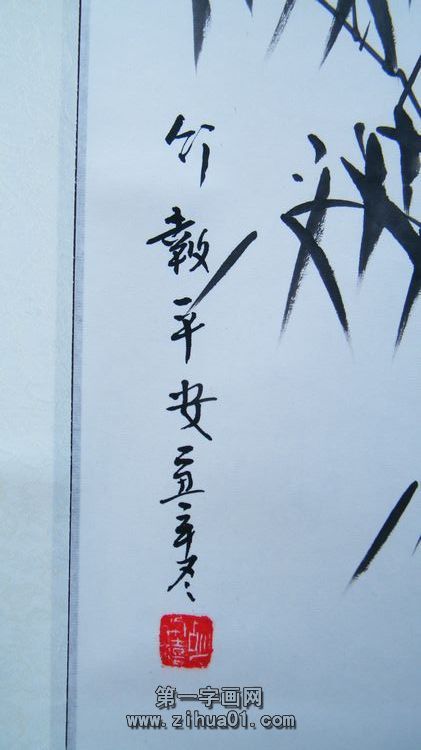 竹報平安丑年冬
第一字画网
www.zihua01.com